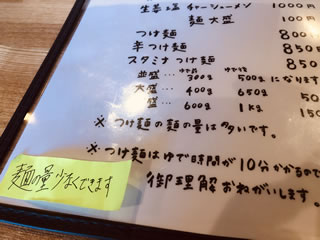 生姜塩チャーシューメン 1000円
麺大盛 100円
つけ麺 800
辛つけ麺 850
スタミナつけ麺 850
ゆで前 ゆで後
並盛… 300g 500gになります
大盛… 400g 650g 50
600g 1kg 150
※つけ麺の麺の量は多いです。
※つけ麺はゆで時間が10分かかるので
御理解おねがいします。
麺の量少なくできます